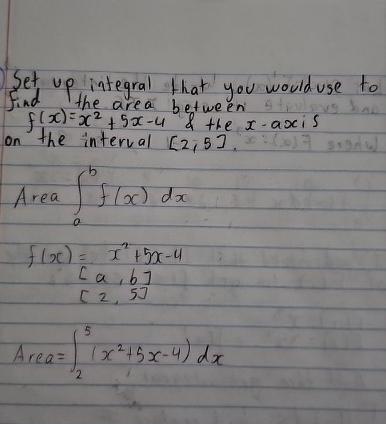 Set up integral that you would use to
find the area between
f(x)=x² +5x-4 & the x-axis
on the interval [2,5].
b
Area ∫ f(x) dx
a
f(x) = x²+5x-4
[a, b]
[2, 5]
5
Area = ∫ (x²+5x-4) dx
2